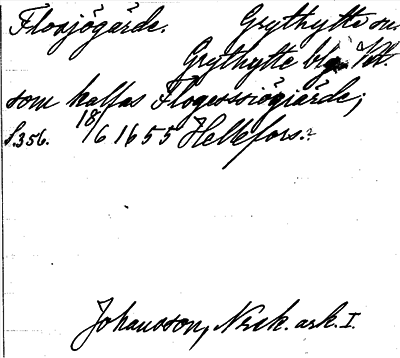 Flosjögärde. Grythytte sn.
Grythytte blg.
som kallas Flogessiögiärde;
s.356. 18/6 1655 Hellefors.
Johansson, Norsk. ark. I.